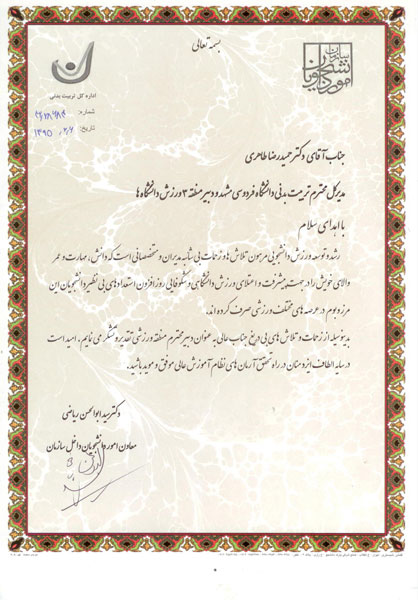 بسمه تعالی
سازمان امور دانشجویان
اداره کل تربیت بدنی
شماره:
تاریخ: ۱۳۹۵
جناب آقای دکتر حمیدرضا طاهری
مدیرکل محترم تربیت بدنی دانشگاه فردوسی مشهد و دبیر منطقه ۳ ورزش دانشگاه ها
با اهدای سلام
رشد و توسعه ورزش دانشجویی مرهون تلاش ها و زحمات بی شائبه مدیران و متخصصانی است که دانش، مهارت و عمر
والای خویش را در جهت پیشرفت و اعتلای ورزش دانشگاهی و شکوفایی روز افزون استعدادهای بی نظیر دانشجویان این
مرز و بوم در عرصه های مختلف ورزشی صرف کرده اند.
بدینوسیله از زحمات و تلاش های بی دریغ جناب عالی به عنوان دبیر محترم منطقه ورزشی تقدیر و تشکر می نمایم. امید است
در سایه الطاف ایزد منان در راه تحقق آرمان های نظام آموزش عالی موفق و موید باشید.
دکتر سید ابوالحسن ریاضی
معاون امور دانشجویان داخل سازمان